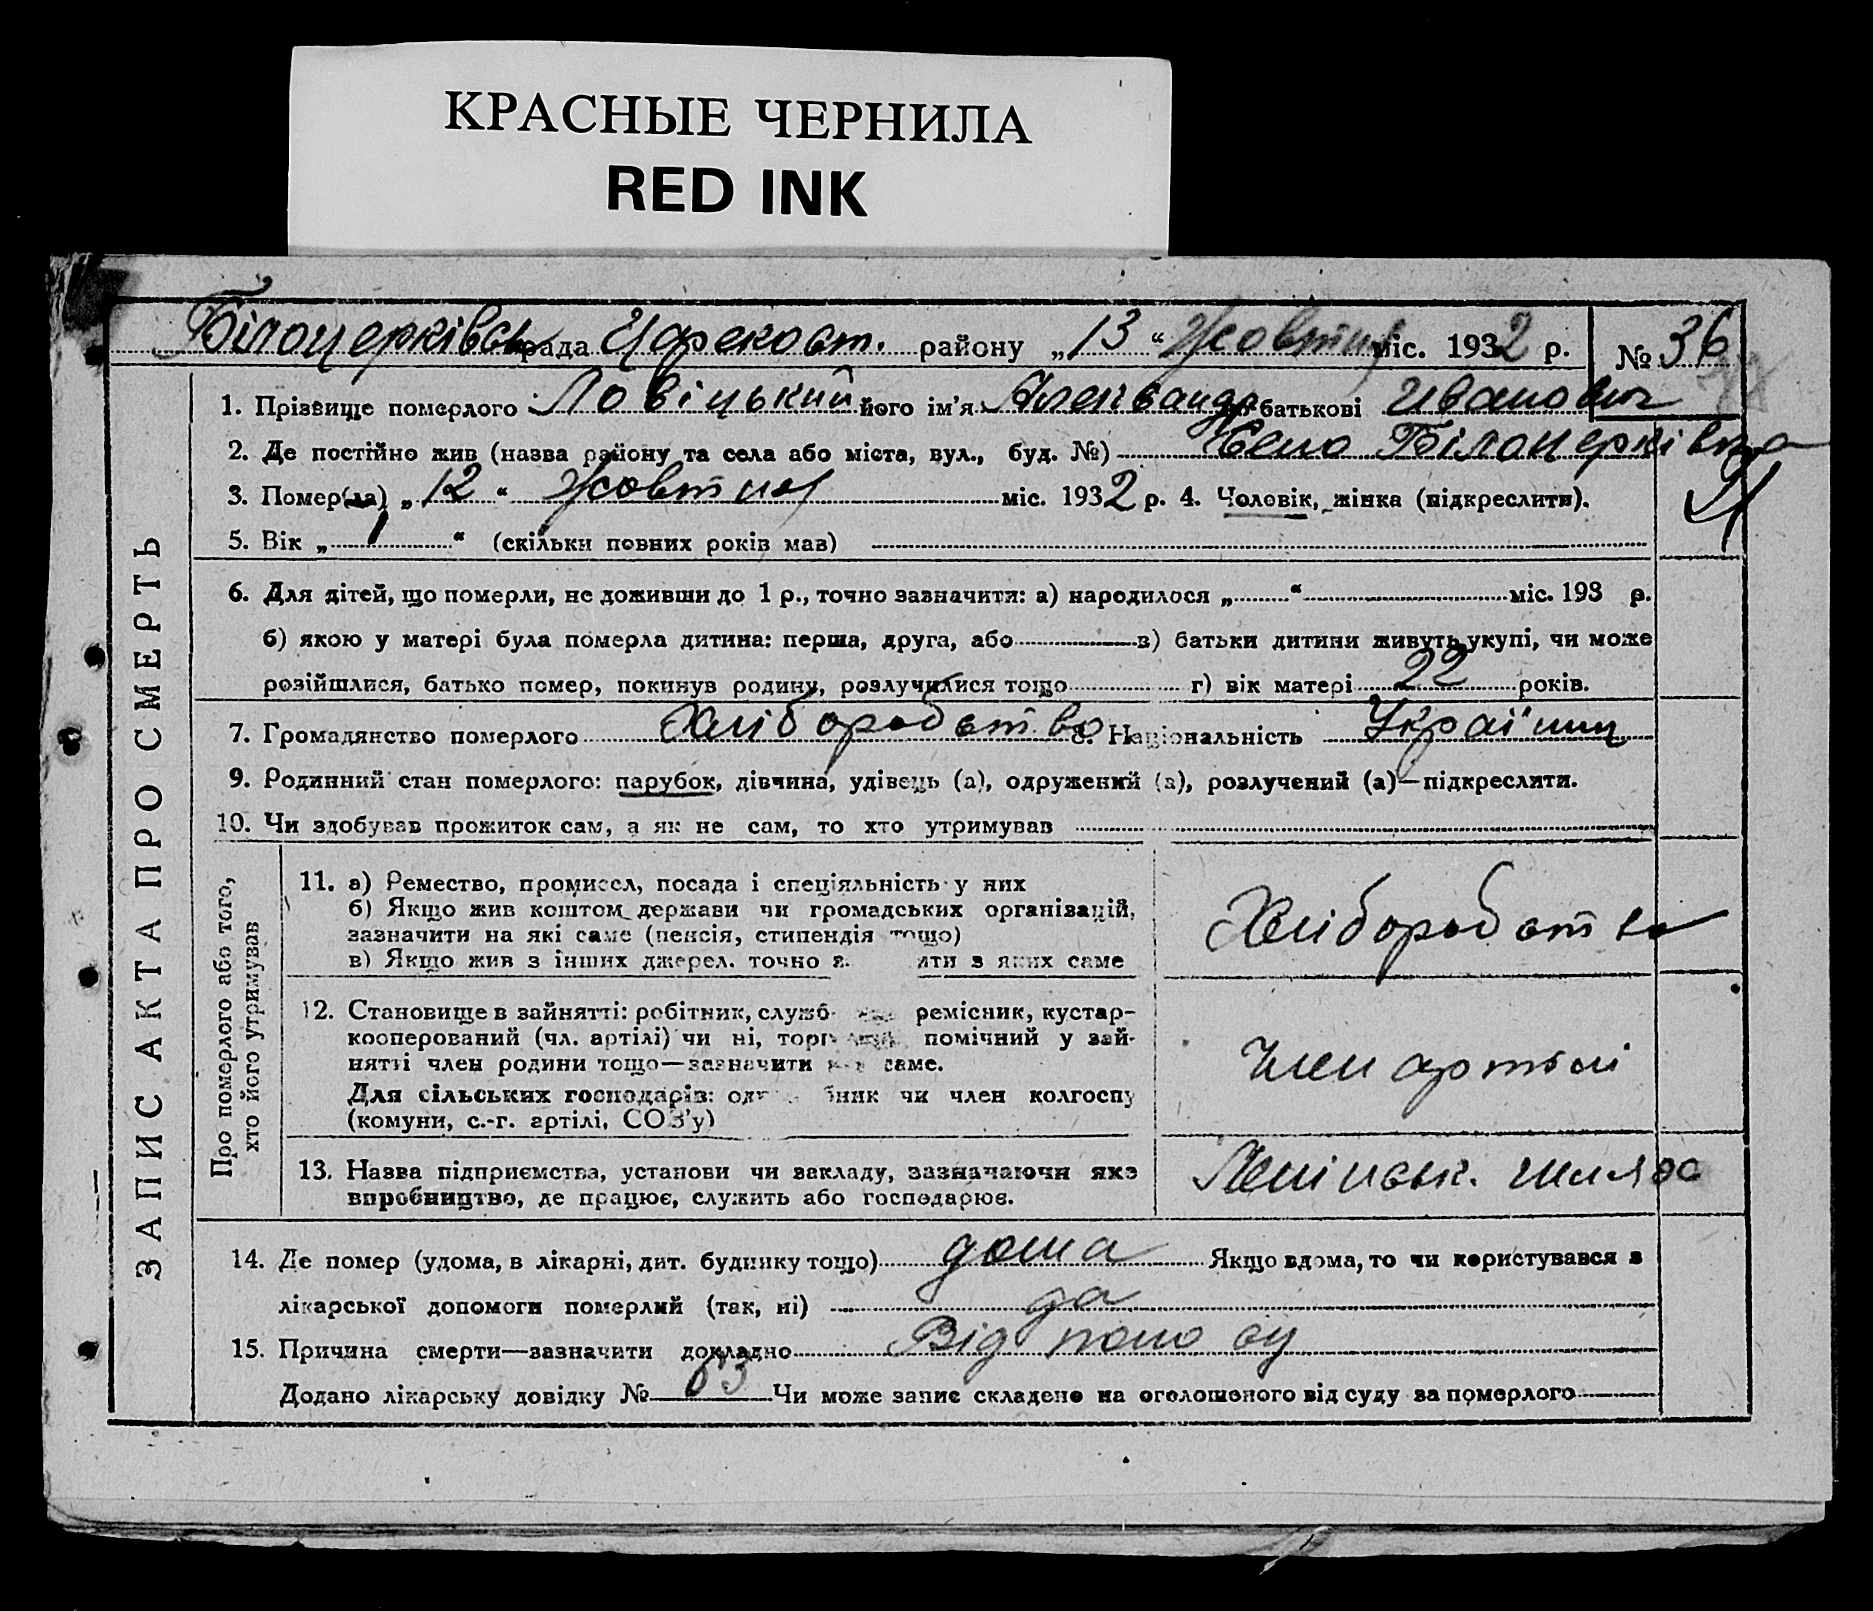 КРАСНЫЕ ЧЕРНИЛА
RED INK
Білоцерківськ рада района „13“ Жовтня міс. 1932 р. № 36
1. Прізвище померлого Ловіцький його ім'я Александр по батькові Иванович
2. Де постійно жив (назва району та села або міста, вул., буд. №) Село Білоцерківка
3. Помер(ла) „12“ Жовтня міс. 1932 р. 4. Чоловік, жінка (підкреслити).
5. Вік „1“ (скільки повних років мав)
6. Для дітей, що померли, не доживши до 1 р., точно зазначити: а) народилося „ “ міс. 193 р.
б) якою у матері була померла дитина: перша, друга, або в) батьки дитини живуть укупі, чи може
розійшлися, батько помер, покинув родину, розлучилися тощо г) вік матері 22 років.
7. Громадянство померлого Хліборобство 8. Національність Україниц
9. Родинний стан померлого: парубок, дівчина, удівець (а), одружений (а), розлучений (а)—підкреслити.
10. Чи здобував прожиток сам, а як не сам, то хто утримував
ЗАПИС АКТА ПРО СМЕРТЬ
Про померлого або того,
хто його утримував
11. а) Ремество, промисел, посада і спеціяльність у них
б) Якщо жив коштом держави чи громадських організацій,
зазначити на які саме (пенсія, стипендія тощо)
в) Якщо жив з інших джерел. точно з яких саме
Хліборобство
12. Становище в зайнятті: робітник, служб ремісник, кустар-
кооперований (чл. артілі) чи ні, торг помічний у зай-
нятті член родини тощо—зазначити саме.
Для сільських господарів: од чи член колгоспу
(комуни, с.-г. артілі, СОЗ'у)
Член артілі
13. Назва підприємства, установи чи закладу, зазначаючи яке
виробництво, де працює, служить або господарює.
Ленінськ. шлях
14. Де помер (удома, в лікарні, дит. будинку тощо) дома Якщо вдома, то чи користувався з
лікарської допомоги померлий (так, ні) да
15. Причина смерти—зазначити докладно Від поносу
Додано лікарську довідку № 63 Чи може запис складено на оголошеного від суду за померлого